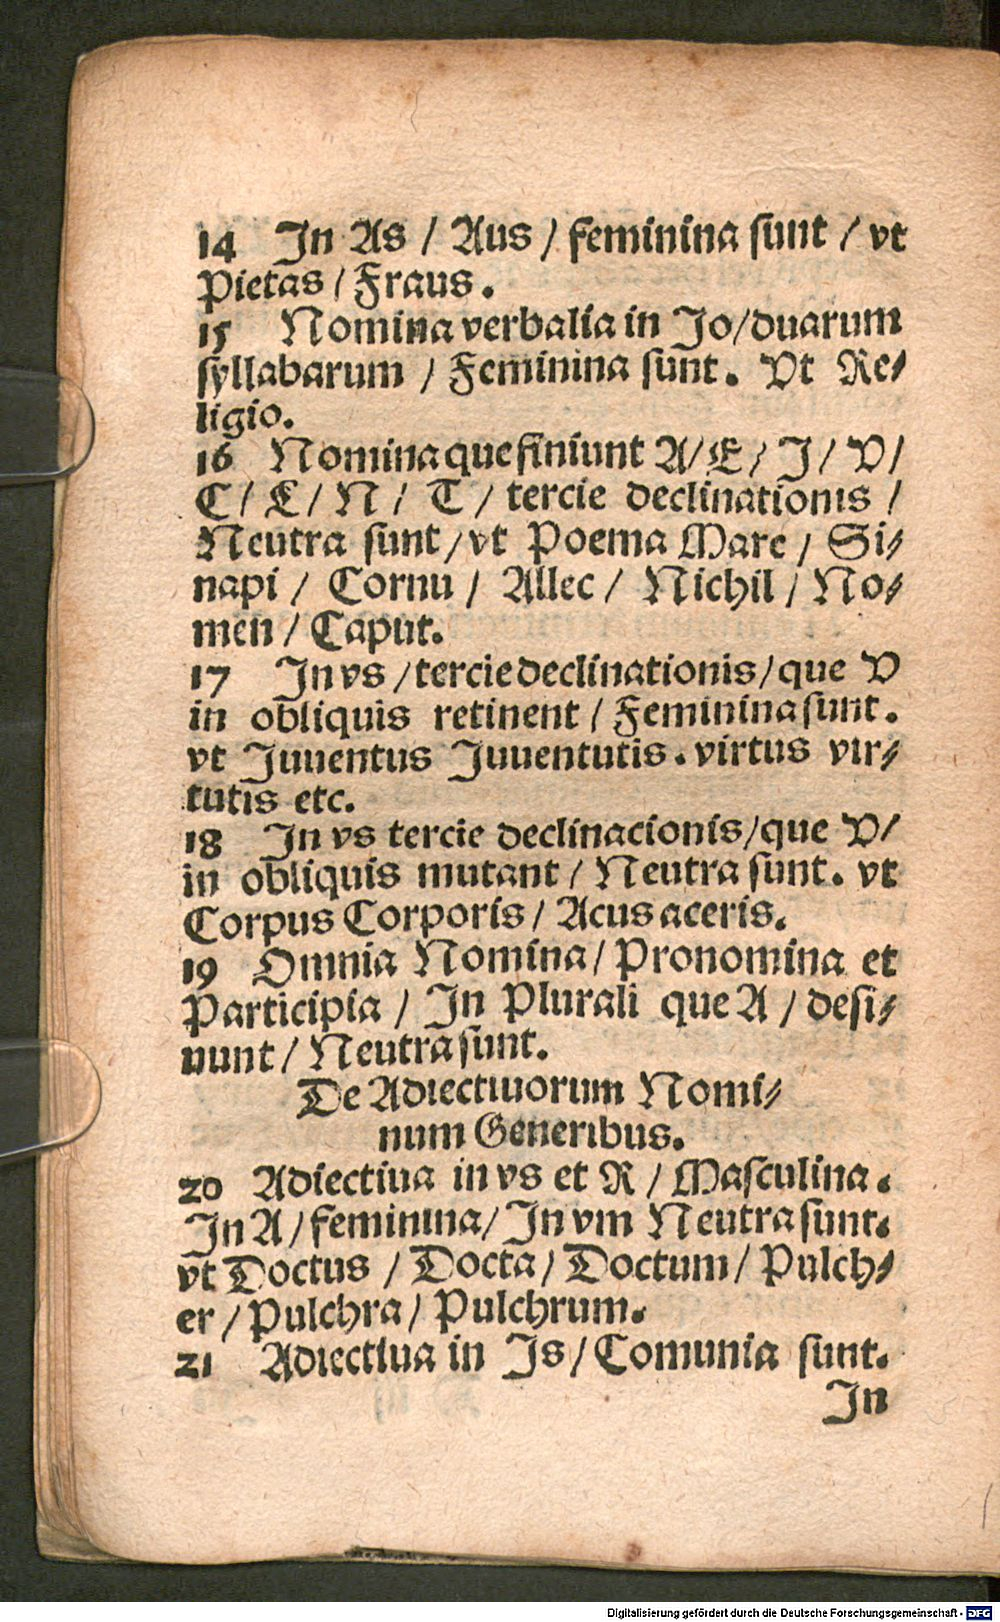 14 In As / Aus / feminina sunt / vt
Pietas / Fraus.
15 Nomina verbalia in Jo/duarum
syllabarum / Feminina sunt. Vt Re⸗
ligio.
16 Nomina que finiunt A/E/ I/ V/
C / L / N / T / tercie declinationis /
Neutra sunt/vt Poema Mare / Si⸗
napi / Cornu / Allec / Nichil / No⸗
men / Caput.
17 In vs /tercie declinationis/que V
in obliquis retinent / Feminina sunt.
vt Iuuentus Iuuentutis. virtus vir⸗
tutis etc.
18 In vs tercie declinacionis/que V/
in obliquis mutant / Neutra sunt. vt
Corpus Corporis / Acus aceris.
19 Omnia Nomina/ Pronomina et
Participia / In Plurali que A / desi⸗
nunt / Neutra sunt.
De Adiectiuorum Nomi⸗
num Generibus.
20 Adiectiua in vs et R / Masculina.
In A / feminina/ In vm Neutra sunt.
vt Doctus / Docta/ Doctum/ Pulch⸗
er / Pulchra/ Pulchrum.
21 Adiectiua in Is / Comunia sunt.
In
Digitalisierung gefördert durch die Deutsche Forschungsgemeinschaft - DFG